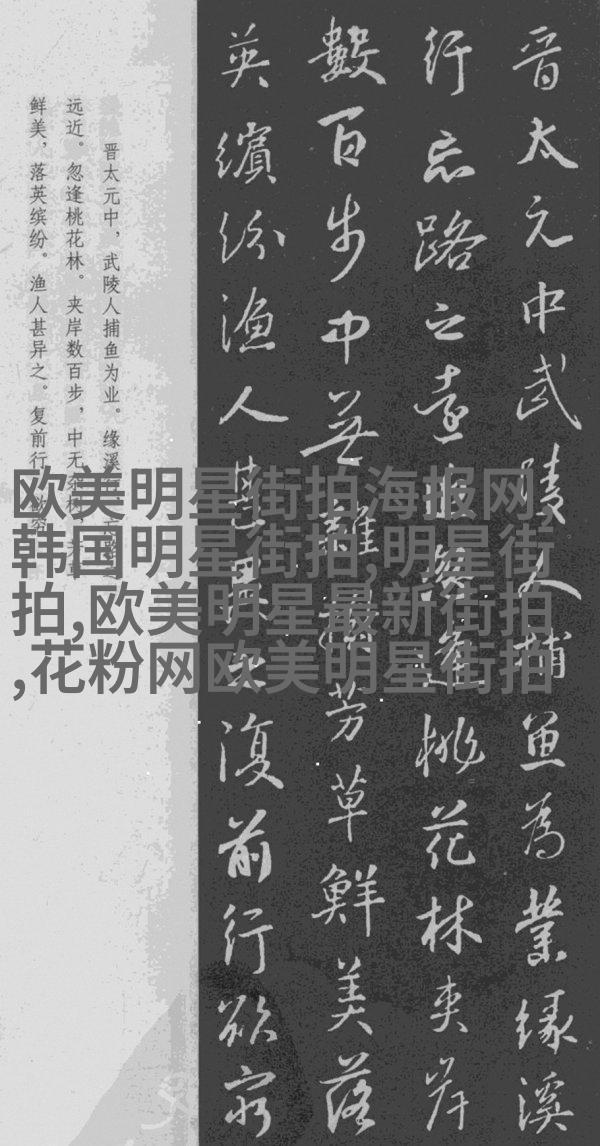 晋太元中武陵人捕魚為業緣溪
行忘路之遠近忽逢桃花林夾岸
數百步中無雜樹芳草鮮美落
英繽紛漁人甚異之復前行欲窮
晋太元中，武陵人捕鱼为业。缘溪行，忘路之
远近。忽逢桃花林。夹岸数百步，中无杂树，芳草
鲜美，落英缤纷。渔人甚异之。复前行，欲穷
欧美明星街拍海报网,
韩国明星街拍,明星街
拍,欧美明星最新街拍
,花粉网欧美明星街拍